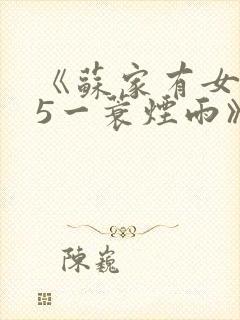 《蘇家有女
5一蓑煙雨》
陳巍